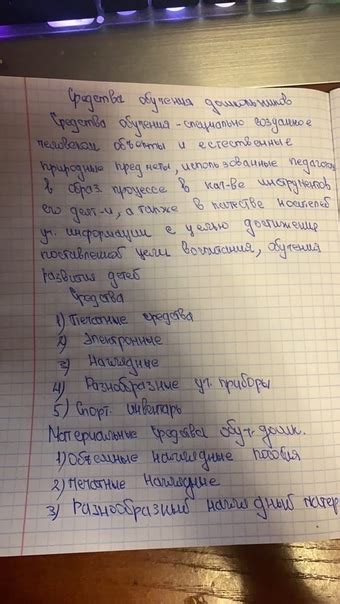 Средства обучения дошкольников
Средства обучения - специально созданное
человеком объекты и естественные
природные предметы, использованные педагогом
в образ. процессе в кач-ве инструментов
его деят-и, а также в качестве носителей
уч. информации с целью достижение
поставленной цели воспитания, обучения
развития детей
Средства
1) Печатные средства
2) Электронные
3) Наглядные
4) Разнообразные уч. приборы
5) Спорт. инвентарь
Материальные средства обуч. дошк.
1) Объемные наглядные пособия
2) Печатные наглядные
3) Разнообразный наглядный матер